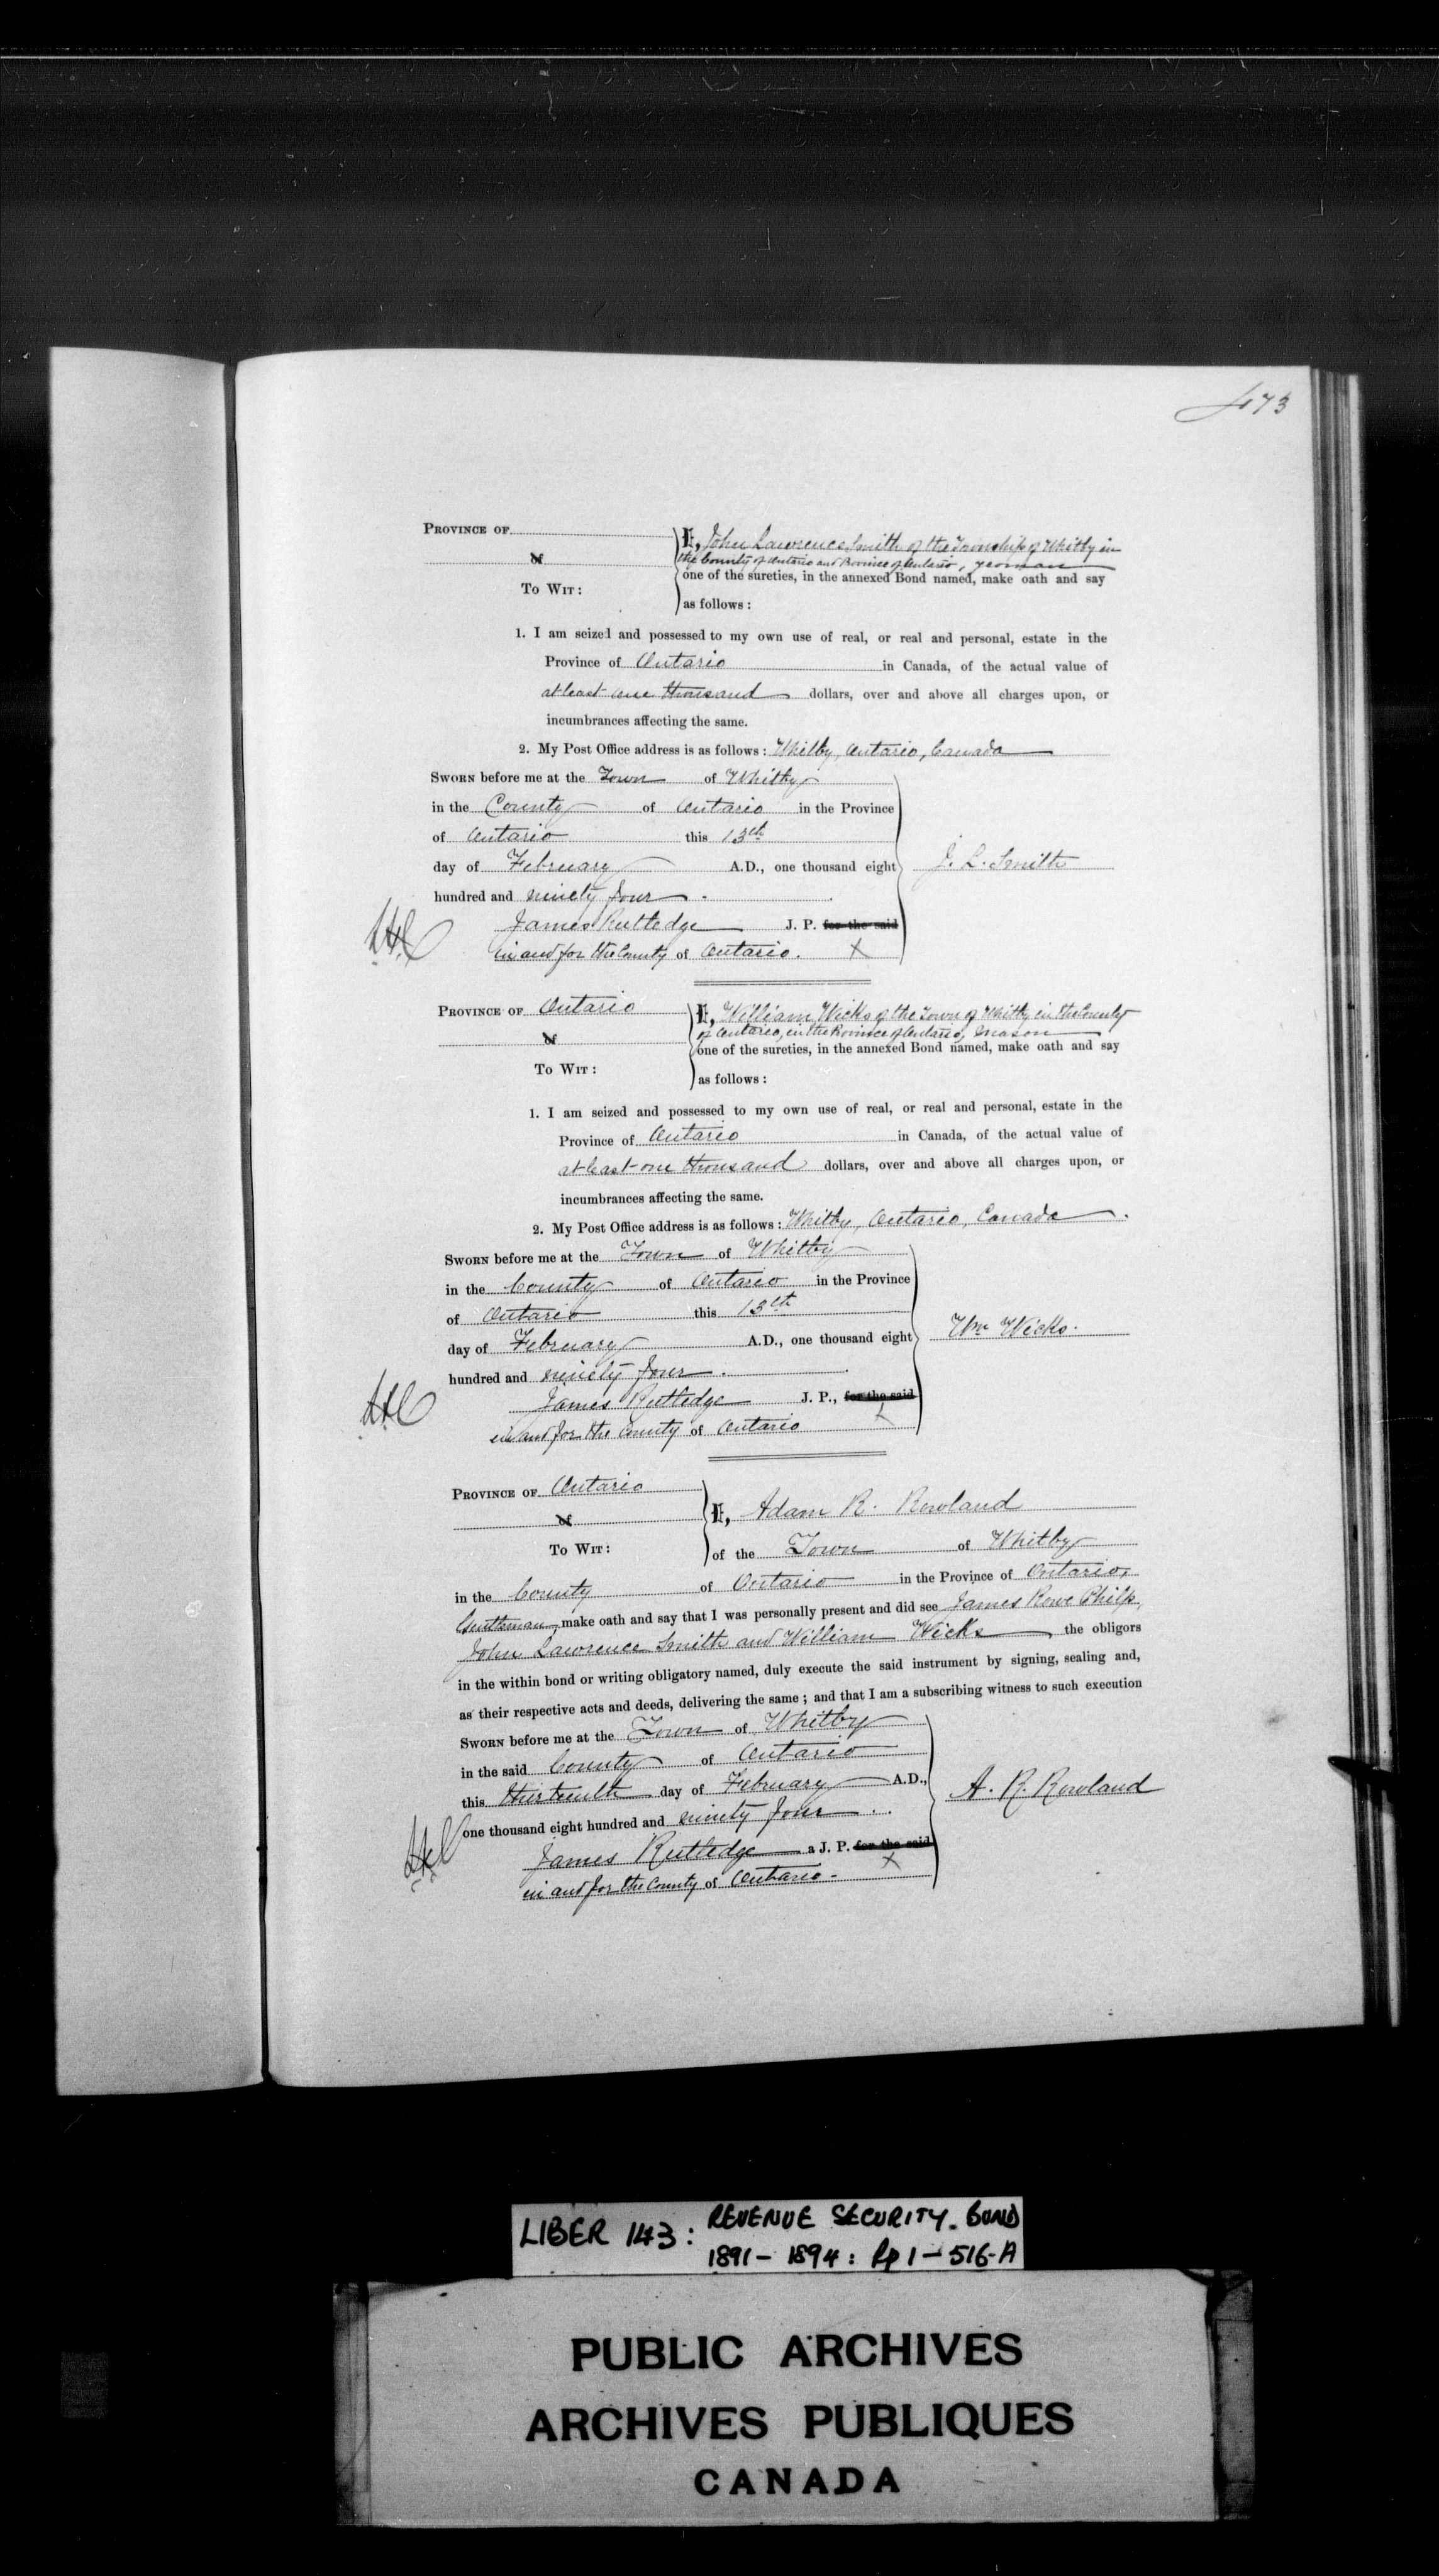 473
PROVINCE OF
I, John Lawrence Smith of the Township of Whitby in
the County of Ontario and Province of Ontario, yeoman
Of
one of the sureties, in the annexed Bond named, make oath and say
TO WIT:
as follows:
1. I am seized and possessed to my own use of real, or real and personal, estate in the
Province of Ontario in Canada, of the actual value of
at least one thousand dollars, over and above all charges upon, or
incumbrances affecting the same.
2. My Post Office address is as follows: Whitby, Ontario, Canada
SWORN before me at the Town of Whitby
in the County of Ontario in the Province
of Ontario this 13th
day of February A.D., one thousand eight
J. L. Smith
hundred and ninety four.
James Rutledge J. P. for the said
in and for the County of Ontario. X
PROVINCE OF Ontario
I, William Wicks of the Town of Whitby in the County
of Ontario, in the Province of Ontario, mason
Of
one of the sureties, in the annexed Bond named, make oath and say
TO WIT:
as follows:
1. I am seized and possessed to my own use of real, or real and personal, estate in the
Province of Ontario in Canada, of the actual value of
at least one thousand dollars, over and above all charges upon, or
incumbrances affecting the same.
2. My Post Office address is as follows: Whitby, Ontario, Canada.
SWORN before me at the Town of Whitby
in the County of Ontario in the Province
of Ontario this 13th
day of February A.D., one thousand eight
Wm Wicks.
hundred and ninety four.
James Rutledge J. P., for the said
in and for the County of Ontario X
PROVINCE OF Ontario
I, Adam R. Rowland
Of
TO WIT:
of the Town of Whitby
in the County of Ontario in the Province of Ontario,
Gentleman make oath and say that I was personally present and did see James Rowe Philp,
John Lawrence Smith and William Wicks the obligors
in the within bond or writing obligatory named, duly execute the said instrument by signing, sealing and,
as their respective acts and deeds, delivering the same; and that I am a subscribing witness to such execution
SWORN before me at the Town of Whitby
in the said County of Ontario
this thirteenth day of February A.D.,
A. R. Rowland
one thousand eight hundred and ninety four.
James Rutledge a J. P. for the said
in and for the County of Ontario X
LIBER 143: REVENUE SECURITY. BOND
1891-1894: Pp 1-516-A
PUBLIC ARCHIVES
ARCHIVES PUBLIQUES
CANADA